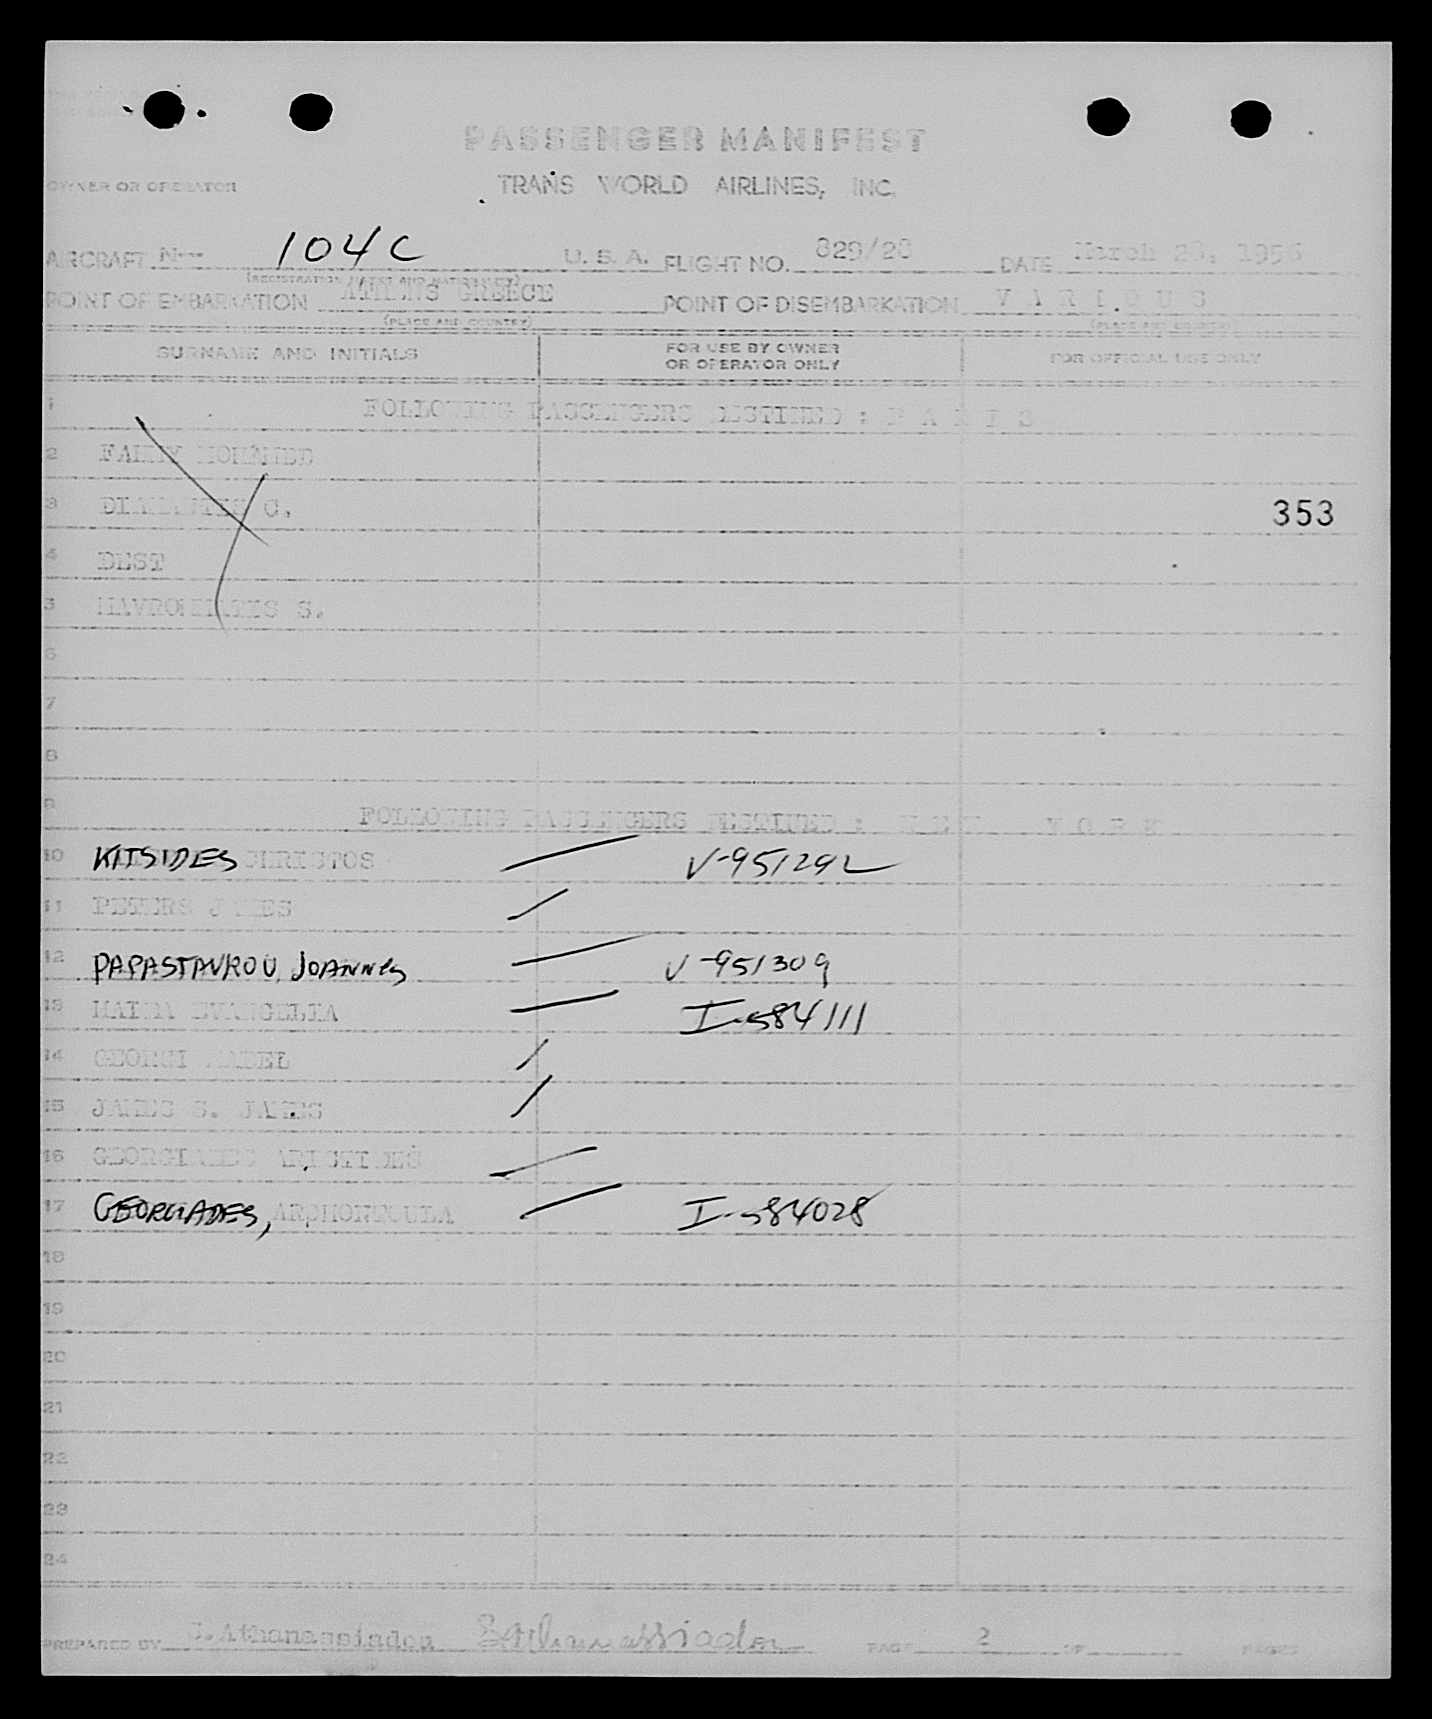 PASSENGER MANIFEST
OWNER OR OPERATOR TRANS WORLD AIRLINES, INC.
AIRCRAFT N 104C U. S. A. FLIGHT NO. 829/28 DATE March 28, 1956
(REGISTRATION MARKS AND NATIONALITY)
POINT OF EMBARKATION ATHENS GREECE POINT OF DISEMBARKATION VARIOUS
(PLACE AND COUNTRY) (PLACE AND COUNTRY)
SURNAME AND INITIALS FOR USE BY OWNER OR OPERATOR ONLY FOR OFFICIAL USE ONLY
1 FOLLOWING PASSENGERS DESTINED : P A R I S
2 FAHMY MOHAMED
3 C. 353
4 DEST
5 MAVROMMATIS S.
6
7
8
9 FOLLOWING PASSENGERS DESTINED : N E W Y O R K
10 KITSIDES CHRISTOS V-951292
11 PETERS JAMES
12 PAPASTAVROU, JOANNES V-951309
13 EVANGELIA I-584111
14 GEORGI
15 JAMES S. JAMES
16 GEORGIADES ARISTIDES
17 GEORGIADES, ARCHONTOULA I-584028
18
19
20
21
22
23
24
PREPARED BY S. Athanassiadou SAthanassiadou PAGE 2 OF PAGES